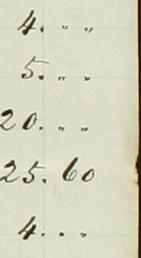 4. " "
5. " "
20. " "
25. 60
4. " "